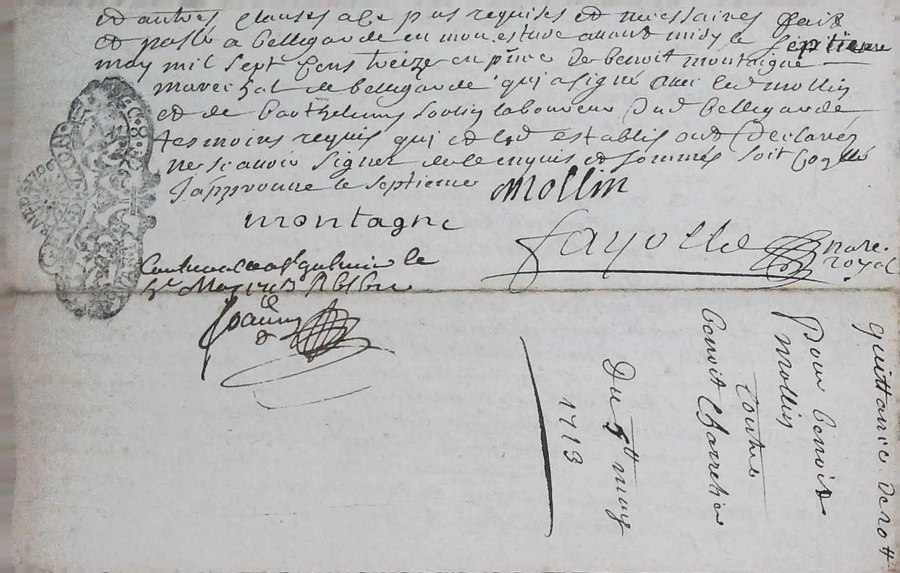 et autres clauses a ce plus requises et necessaires fait
et passé a bellegarde en mon estude avant midy le septieme
may mil sept cens treize en pnce de benoit montaigne
marechal de bellegarde qui a signé avec led mollin
et de barthelemy laboureur dud bellegarde
tesmoins requis qui et led establis ont declarés
ne scavoir signer de ce enquis et sommés soit
J'approuve le septieme mollin
montagne
fayolle nore.
royal
le
may 1713
quittance de
Pour benoit
mollin
contre
benoit Charretier
Du may
1713